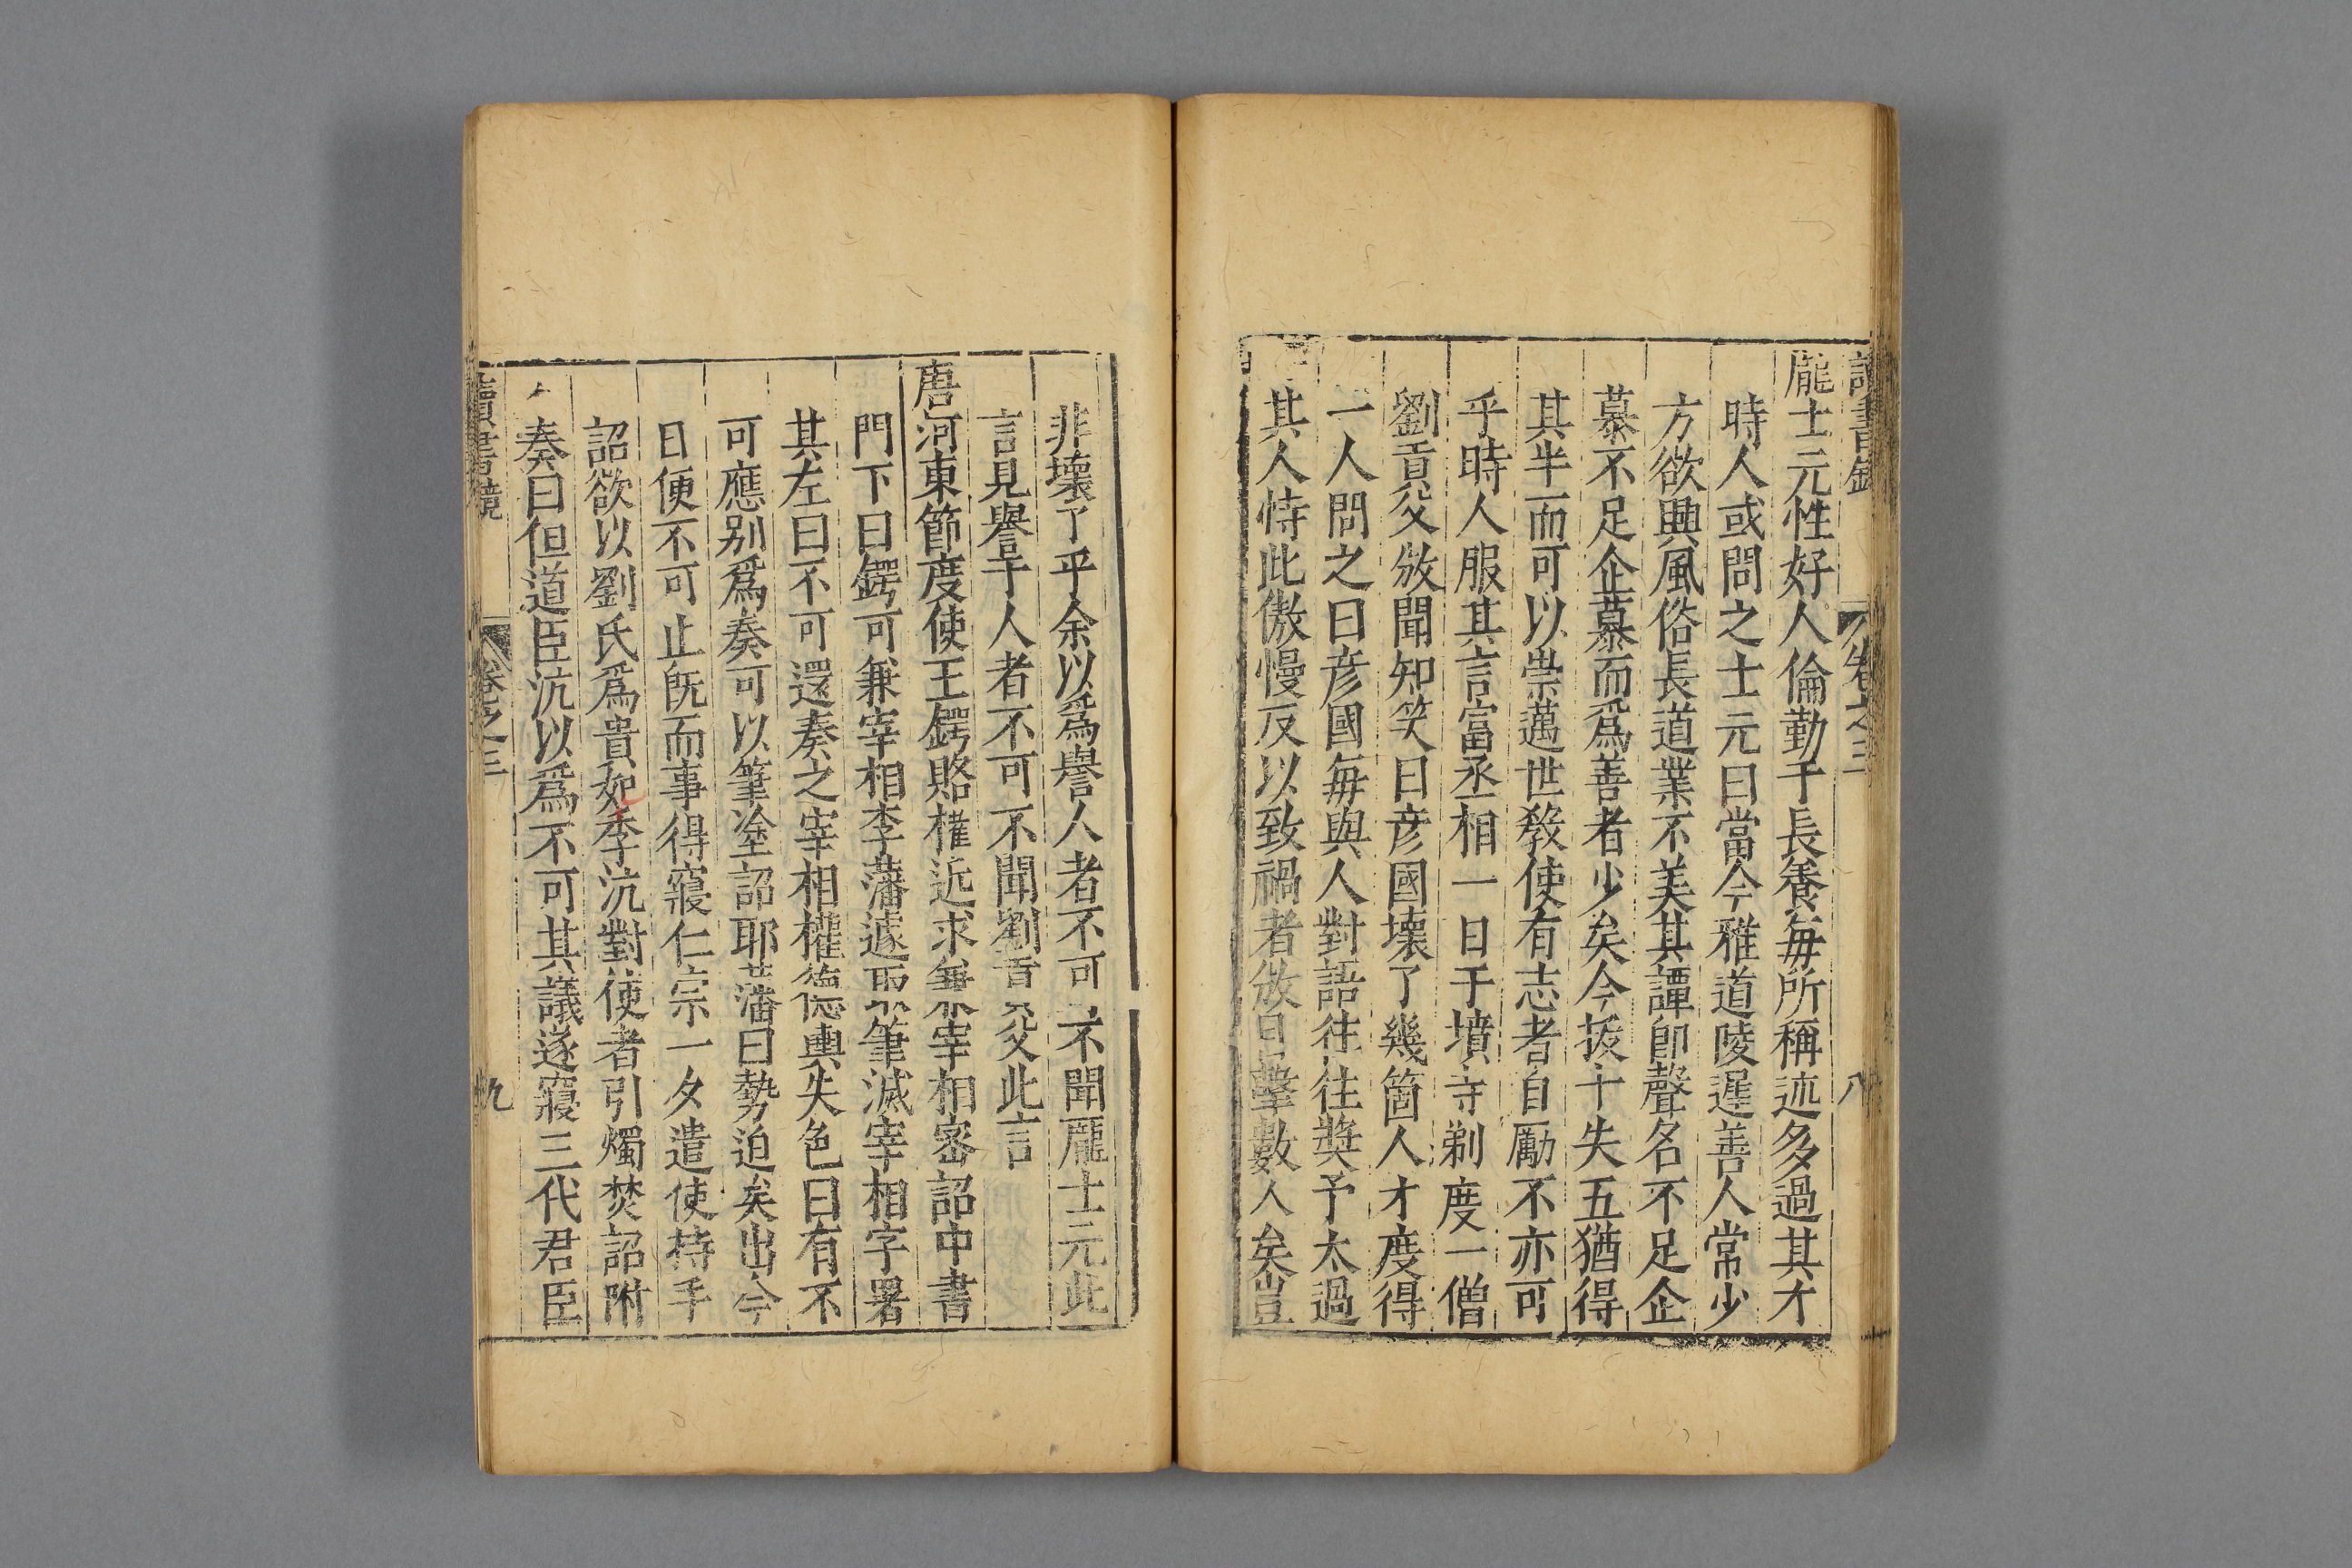 讀書鏡 卷之三 八
龐士元性好人倫勤于長養每所稱述多過其才
時人或問之士元曰當今雅道陵遲善人常少
方欲興風俗長道業不美其譚卽聲名不足企
慕不足企慕而爲善者少矣今拔十失五猶得
其半而可以崇邁世敎使有志者自勵不亦可
乎時人服其言富丞相一日于墳寺剃度一僧
劉貢父攽聞知笑曰彦國壞了幾箇人才度得
一人問之曰彦國每與人對語往往獎予太過
其人恃此傲慢反以致禍者攽目擊數人矣豈
非壞了乎余以爲譽人者不可不聞龐士元此
言見譽于人者不可不聞劉貢父此言
唐河東節度使王鍔賂權近求兼宰相密詔中書
門下曰鍔可兼宰相李藩遽取筆滅宰相字署
其左曰不可還奏之宰相權德輿失色曰有不
可應别爲奏可以筆塗詔耶藩曰勢迫矣出今
日便不可止旣而事得寢仁宗一夕遣使持手
詔欲以劉氏爲貴如李沆對使者引燭焚詔附
奏曰但道臣沆以爲不可其議遂寢三代君臣
讀書鏡 卷之三 九